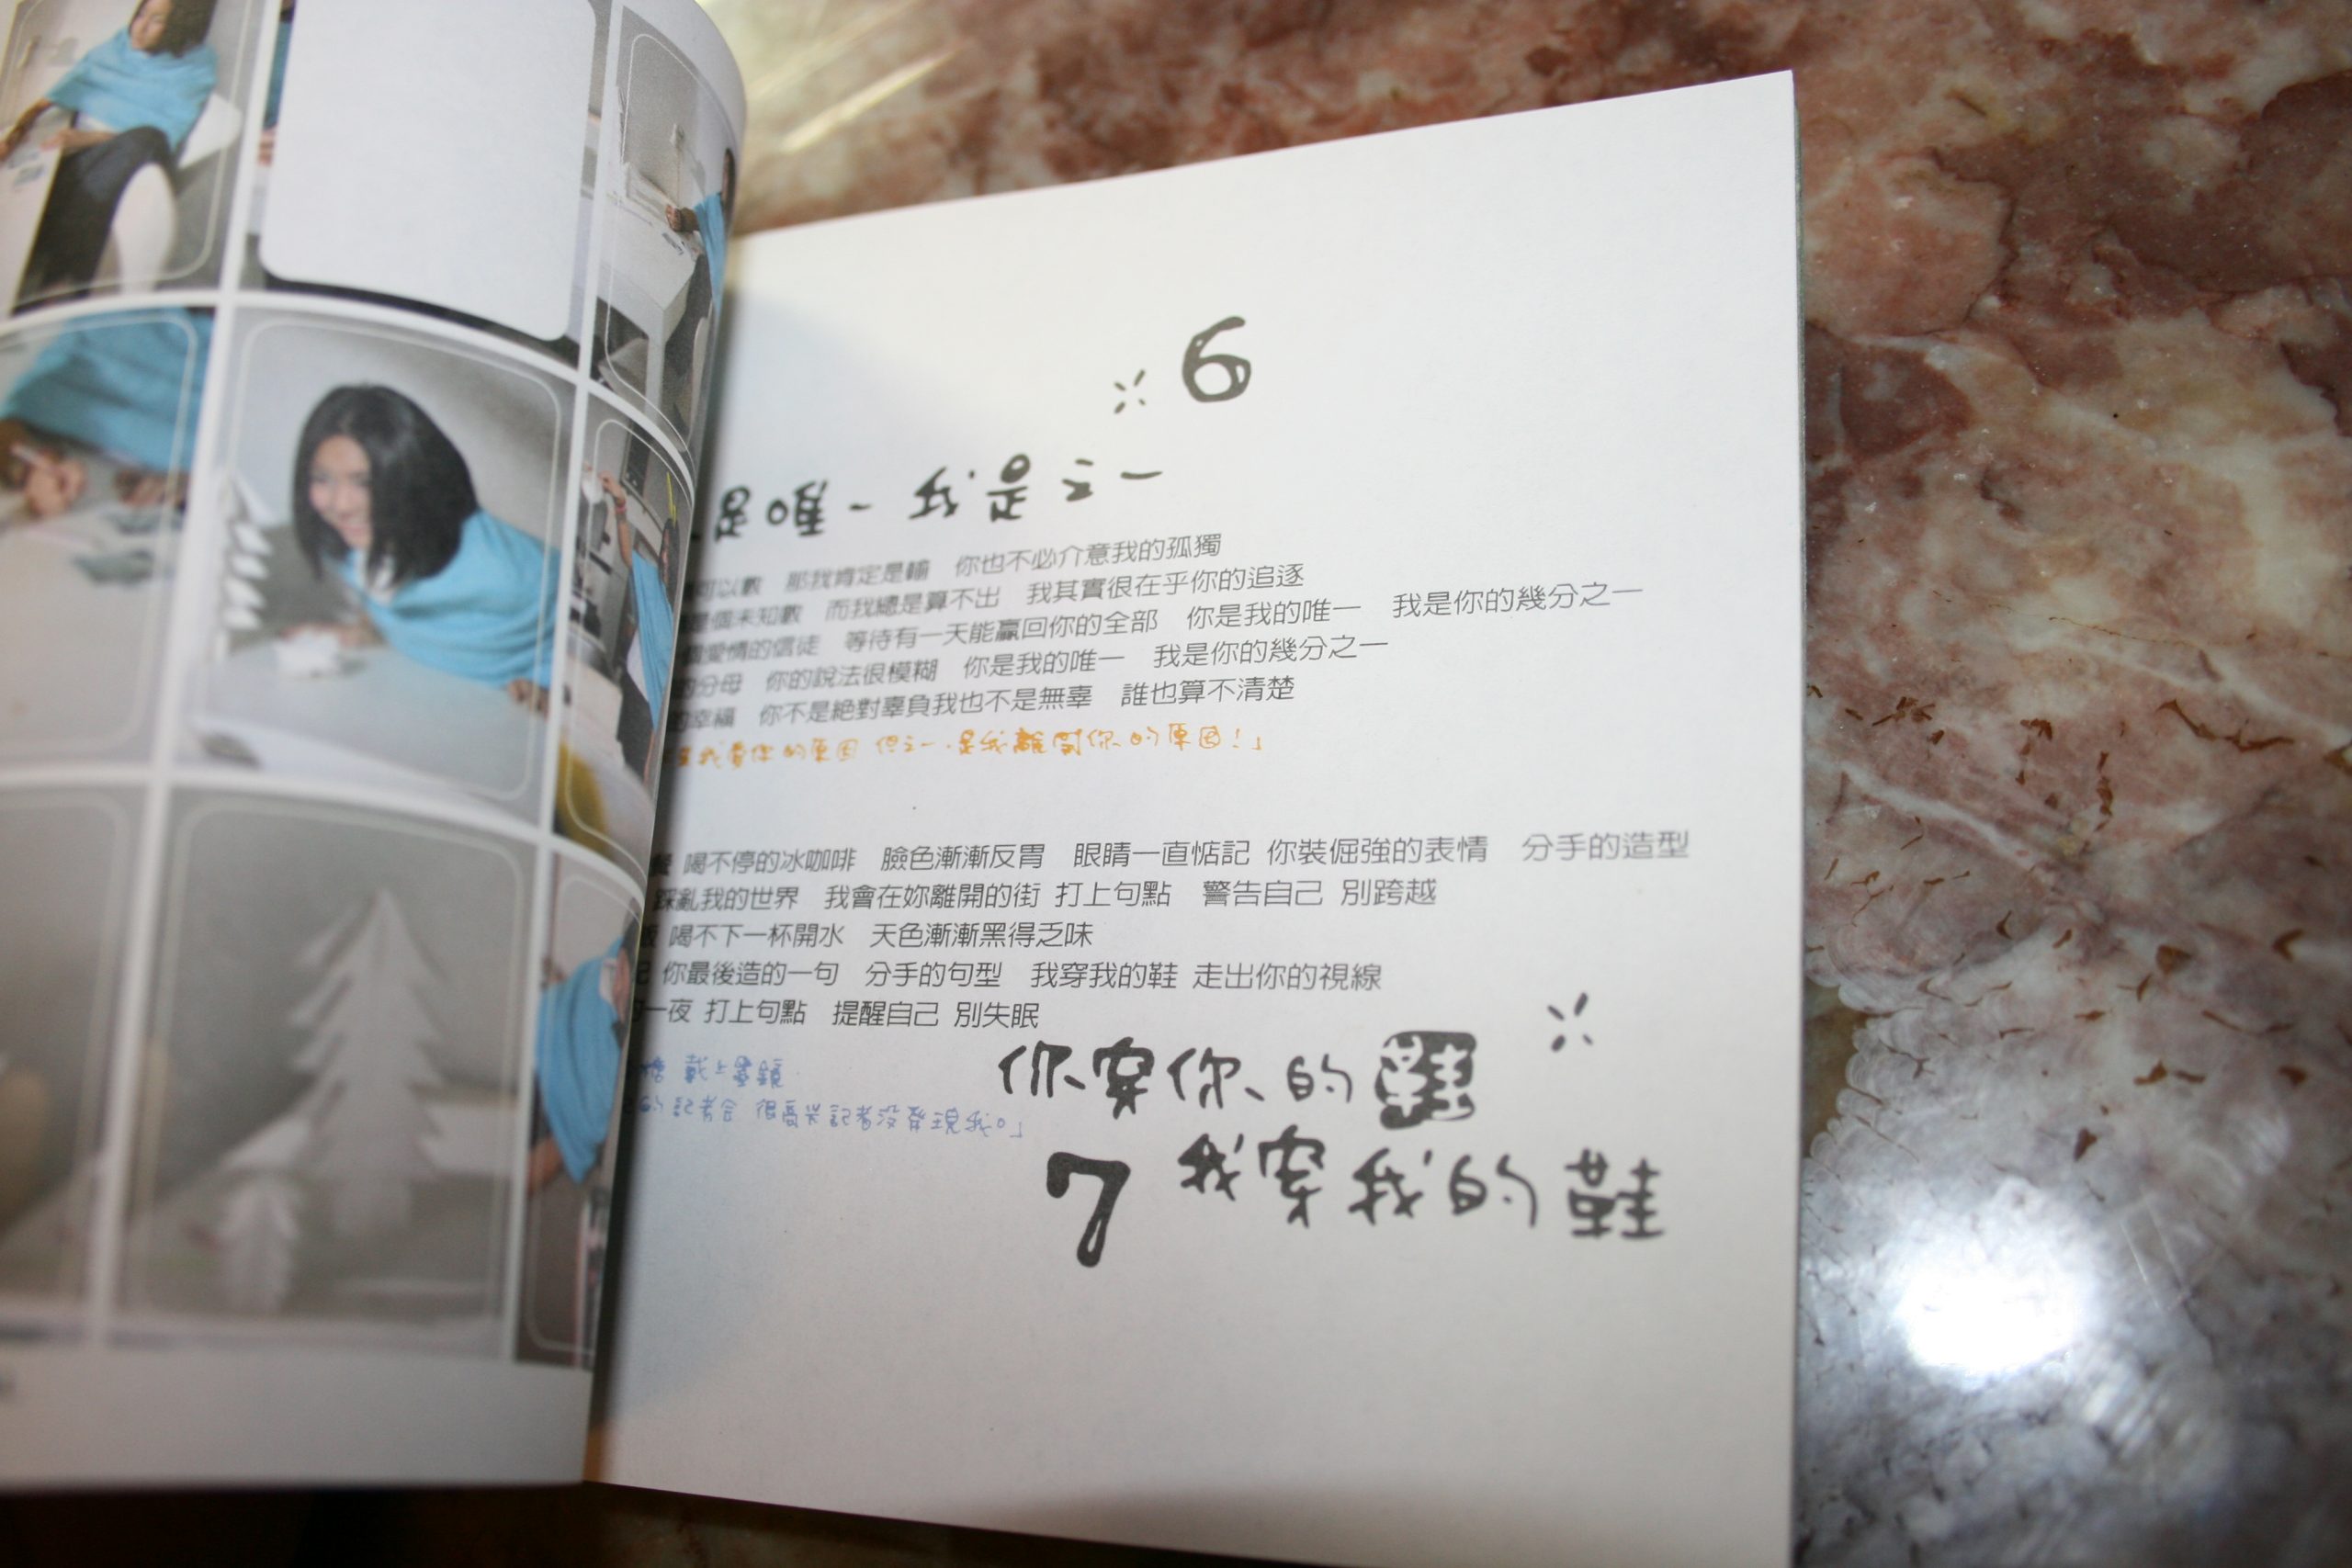 6
是唯一 我是之一
可以數 那我肯定是輸 你也不必介意我的孤獨
是個未知數 而我總是算不出 我其實很在乎你的追逐
個愛情的信徒 等待有一天能贏回你的全部 你是我的唯一 我是你的幾分之一
的分母 你的說法很模糊 你是我的唯一 我是你的幾分之一
的幸福 你不是絕對辜負我也不是無辜 誰也算不清楚
是我愛你的原因 但之一是我離開你的原因！」
餐 喝不停的冰咖啡 臉色漸漸反胃 眼睛一直惦記 你裝倔強的表情 分手的造型
踩亂我的世界 我會在妳離開的街 打上句點 警告自己 別跨越
飯 喝不下一杯開水 天色漸漸黑得乏味
記 你最後造的一句 分手的句型 我穿我的鞋 走出你的視線
一夜 打上句點 提醒自己 別失眠
戴上墨鏡
的記者會 很高興記者沒發現我。」
你穿你的鞋
7 我穿我的鞋